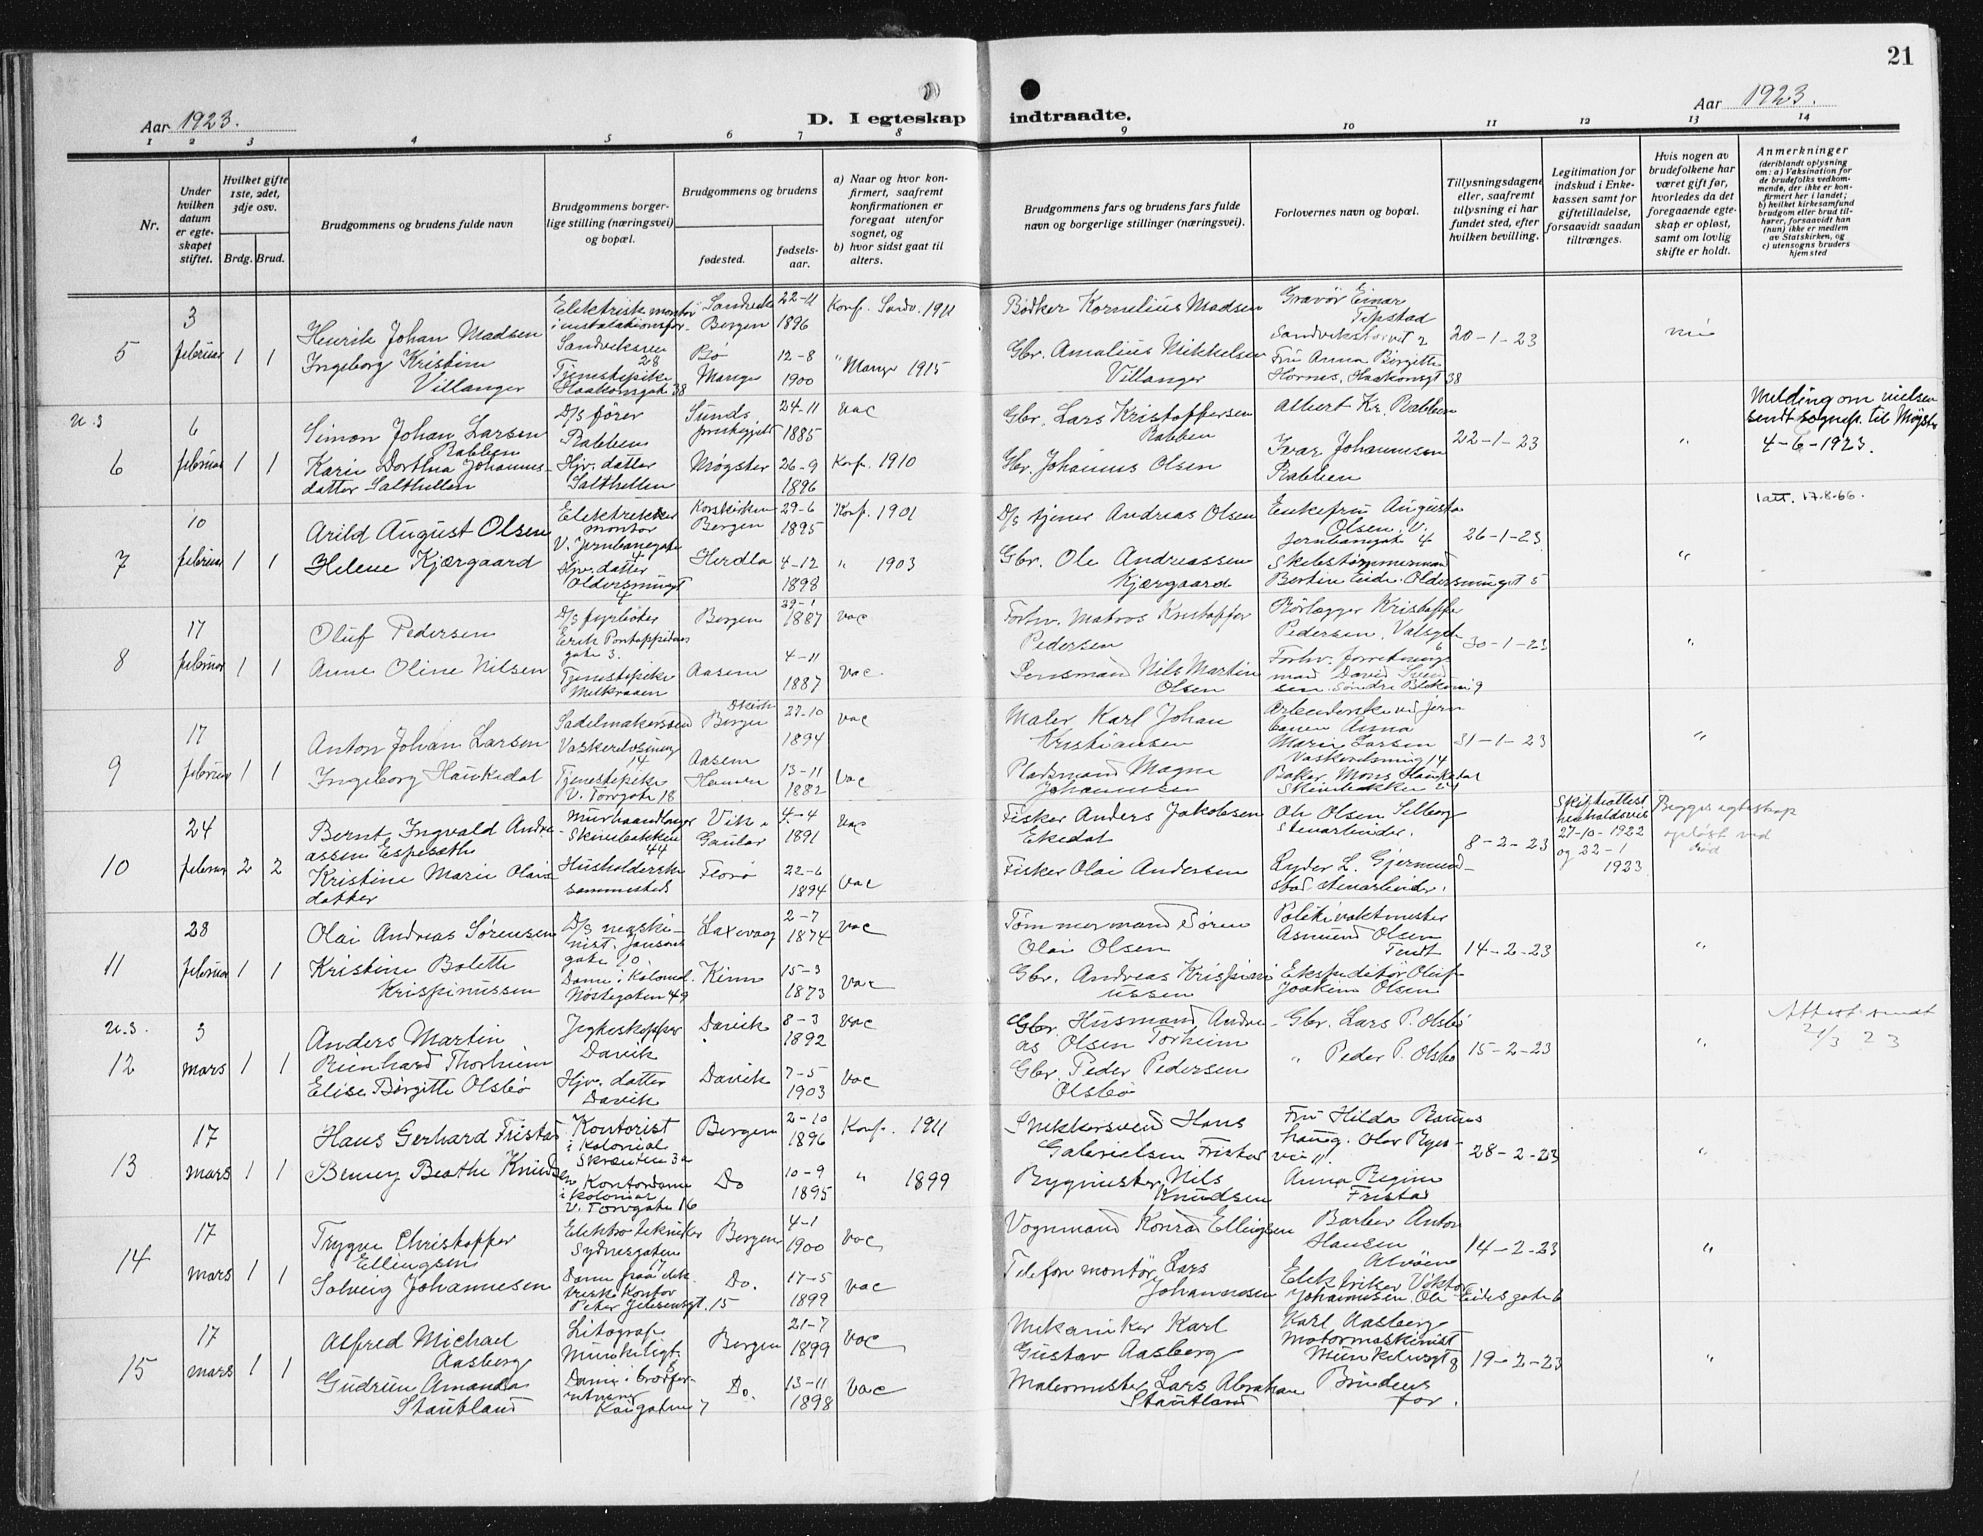 21
Aar 1923.
D. I egteskap indtraadte.
Aar 1923.
1 2 3 4 5 6 7 8 9 10 11 12 13 14
Nr.
Under hvilken datum er egteskapet stiftet.
Hvilket gifte 1ste, 2det, 3dje osv.
Brdg. Brud.
Brudgommens og brudens fulde navn
Brudgommens borgerlige stilling (næringsvei) og bopæl.
Brudgommens og brudens
fødested.
fødselsaar.
a) Naar og hvor konfirmert, saafremt konfirmationen er foregaat utenfor sognet, og
b) hvor sidst gaat til alters.
Brudgommens fars og brudens fars fulde navn og borgerlige stillinger (næringsvei).
Forlovernes navn og bopæl.
Tillysningsdagene eller, saafremt tillysning ei har fundet sted, efter hvilken bevilling.
Legitimation for indskud i Enkekassen samt for giftetilladelse, forsaavidt saadan tiltrænges.
Hvis nogen av brudefolkene har været gift før, hvorledes da det foregaaende egteskap er opløst, samt om lovlig skifte er holdt.
Anmerkninger
(deriblandt oplysning om: a) Vaksination for de brudefolks vedkommende, der ikke er konfirmert her i landet; b) hvilket kirkesamfund brudgom eller brud tilhører, forsaavidt han (hun) ikke er medlem av Statskirken, og c) utensogns bruders hjemsted
5
3 februar
1 1
Henrik Johan Madsen
Ingeborg Kristine
Villanger
Elektrisk montør
Sandviksveien
28
Tjenestepike
Haakonsgate 38
Bergen
22-11
1896
Konf. Sandv. 1911
Bø
Manger
12-8
1900
" Manger 1915
Bødker Kornelius Madsen
Gbr. Amalius Mikkelsen
Villanger
Gravør Einar
Tipstad
Fru Anna Birgitte
Hornes, Haakonsgt 38
20-1-23
nei
6
6 februar
1 1
Simon Johan Larsen
Rabben
Karie Dorthea Johannesdatter Salthellen
D/s fører
Rabben
Hjv. datter
Salthellen
Sunds
24-11
1885
vac
Møgster
26-9
1896
Konf. 1910
Gbr. Lars Kristoffersen
Rabben
Gbr. Johannes Olsen
Albert Kr. Rabben
Ivar Johannesen
Rabben
22-1-23
"
Melding om vielsen
sendt sognep. til Møgster
4-6-1923.
7
10 februar
1 1
Arild August Olsen
Helene Kjærgaard
montør
V. Jernbanegate
4
Hjv. datter
4
Korskirken
Bergen
29-6
1895
Konf. 1901
Herdla
4-12
1898
" 1903
D/s tjener Andreas Olsen
Gbr. Ole Andreassen
Kjærgaard
Enkefru Augusta
Olsen, V.
Jernbanegate 4
Skibstømmermand
26-1-23
"
Iatt. 17.8.66.
8
17 februar
1 1
Oluf Pedersen
Anne Oline Nilsen
D/s fyrbøter
Erik Pontoppidans
gate 3.
Tjenestepike
Bergen
29-1
1887
vac
Aasene
4-11
1887
vac.
Forhv. Matros Kristoffer
Pedersen
Lensmand Nils Martin
Olsen
Rørlægger Kristoffer
Pedersen,
30-1-23
"
9
17 februar
1 1
Anton Johan Larsen
Ingeborg Haukedal
Sadelmakersvend
14
Tjenestepike
V. Torvgate 18
Bergen
27-10
1894
vac
Aasene
13-11
1882
vac
Maler Karl Johan
Kristiansen
Pladsmand Magne
Johannesen
Anna
Marie Larsen
Baker Mons Haukedal
31-1-23
"
10
24 februar
2 2
Bernt Ingvald Andreassen Espeseth
Kristine Marie Olaisdatter
Murhaandlanger
Skivebakken
44
Husholderske
sammesteds
Vik
Gaular
4-4
1891
vac
Florø
22-6
1894
vac
Fisker Anders Jakobsen
Ekedal
Fisker Olai Andersen
Ole Olsen Selberg
Stenarbeider.
Lyder L. Gjermundstad, stenarbeider.
8-2-23
Skifteattest
27-10-1922
og 22-1
1923
Begges egteskap
opløst ved
død
11
28 februar
1 1
Olai Andreas Sørensen
Kristine Bolette
Krispinussen
D/s maskinist. Jansons
gate 10.
Dame i Kolonial.
Nøstegaten 49
Laxevaag
2-7
1874
vac
Kinn
15-3
1873
vac
Tømmermand Søren
Olai Olsen
Gbr. Andreas Krispinussen
Politivaktmester
Asmund Olsen
Ekspeditør Oluf
Joakim Olsen
14-2-23
"
12
3 mars
1 1
Anders Martin
Reinhard Thorheim
Elise Birgitte Olsbø
Davik
Hjv. datter
Davik
Davik
8-3
1892
vac
Davik
7-5
1903
vac
Gbr. Husmand Andreas Olsen Torheim
Gbr. Peder Pedersen
Olsbø
Gbr. Lars P. Olsbø
" Peder P. Olsbø
15-2-23
"
Attest sendt
21/3 23
13
17 mars
1 1
Hans Gerhard Fristad
Benny Beathe Knudsen
Kontorist
i kolonial
Skrænten 3a
Kontordame
i kolonial
V. Torvgate 16
Bergen
2-10
1896
Konf. 1911
Do
10-9
1895
" 1899
Snekkersvend Hans
Gabrielsen Fristad
Bygmester Nils
Knudsen
Fru Hilda
Anna Regine
Fristad
28-2-23
"
14
17 mars
1 1
Trygve Christoffer
Ellingsen
Solveig Johannesen
Elektrotekniker
Sydnesgaten
17
Dame paa elektriske kontor
Bergen
4-1
1900
vac
Do.
17-5
1899
vac
Vognmand Konrad Ellingsen
Telefonmontør Lars
Johannesen
Barber Anton
Hansen
Alvøen
Elektriker Viktor
Johannesen,
14-2-23
"
15
17 mars
1 1
Alfred Michael
Aasberg
Gudrun Amanda
Stautland
Litograf
8
Dame i brødforretning
Kaigaten 7
Bergen
21-7
1899
vac
Do.
13-11
1898
vac
Mekaniker Karl
Gustav Aasberg
Malermester Lars Abraham
Stautland
Karl Aasberg
Motormaskinist
Brudens
far.
19-2-23
"